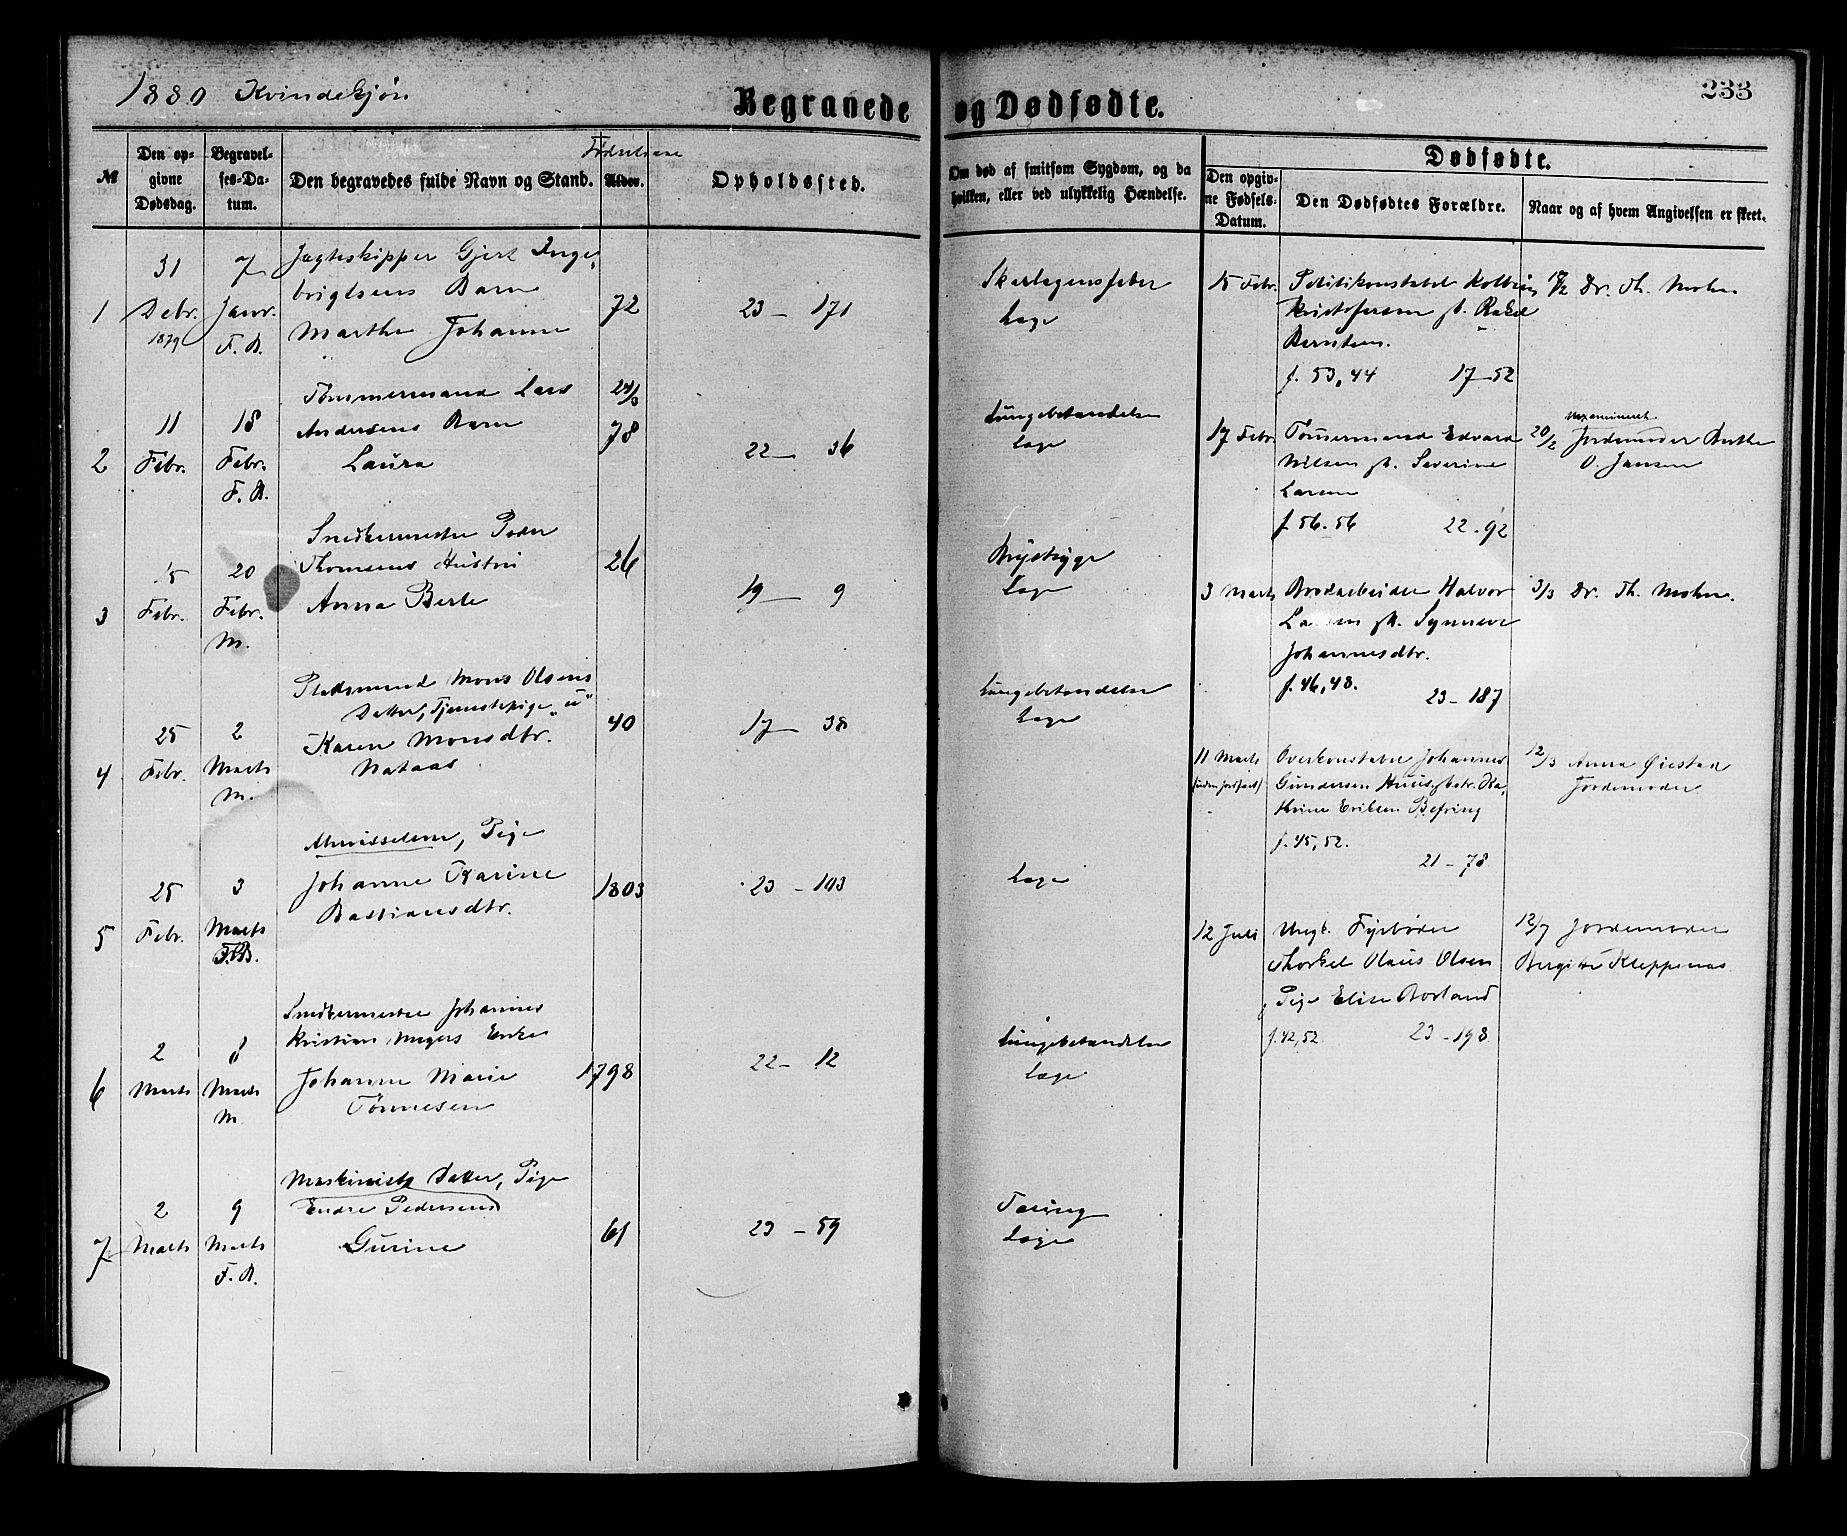 1880 Kvindekjøn
Begravede og Dødfødte.
233
№
Den opgivne Dødsdag.
Begravelses-Datum.
Den begravedes fulde Navn og Stand.
Fødselsaar
Alder.
Opholdssted.
Om død af smitsom Sygdom, og da hvilken, eller ved ulykkelig Hændelse.
Dødfødte.
Den opgivne Fødsels-Datum.
Den Dødfødtes Forældre.
Naar og af hvem Angivelsen er skeet.
1
31 Debr. 1879
7 Janr. F. B.
Jagteskipper Gjert Inge-
brigtsens Barn
Marthe Johanne
72
23 - 171
Skarlagensfeber
Læge
2
11 Febr.
18 Febr. F. B.
Tømmermand Lars
Andersens Barn
Laura
24/3 78
22 - 36
Lungebetændelse
Læge
3
15 Febr.
20 Febr. M.
Snedkermester Peder
Thomsens Hustru
Anna Berle
26
19 - 9
Brystsyge
Læge
4
25 Febr.
2 Marts M.
Pladsmand Mons Olsens
Datter, Tjenestepige "u"
Karen Monsdtr.
Nataas
40
17 - 38
Lungebetændelse
Læge
5
25 Febr.
3 Marts F.B.
Almisselem, Pige
Johanne Karine
Bastiansdtr.
1803
23 - 103
Læge
6
2 Marts
8 Marts M.
Snedkermester Johannes
Kristian Meyers Enke
Johanne Marie
Tønnesen
1798
22 - 12
Lungebetændelse
Læge
7
2 Marts
9 Marts F. B.
Maskinist Datter, Pige
Endre Pedersens
Gurine
61
23 - 59
Tæring
Læge
15 Febr.
Politikonstabel Kolbein
Kristofersen st. Rakel
Berntsen.
f. 53, 44 17-52
18/2 Dr. Th. Mohn
17 Febr.
Tømmermand Edvard
Nilsen st. Severine
Larsen
f. 56. 56 22-92
20/2 Jordemoder Berthe
O. Jansen
3 Marts
Brodarbeider Halvor
Larsen st. Synneve
Johannesdtr.
f. 46, 48. 23-187
3/3 Dr. Th. Mohn.
11 Marts
Overkonstabel Johannes
Gundersen Huus, st. Ka-
thrine Eriksen Befring
f. 45, 52.
21-78
12/3 Anna Øiestad
Jordemoder
12 Juli
Ungk. Fyrbøder
Thorkel Olaus Olsen
Pige Elise Borland
f. 42, 52 23-198
12/7 Jordemoder
Bergitte Kleppenas